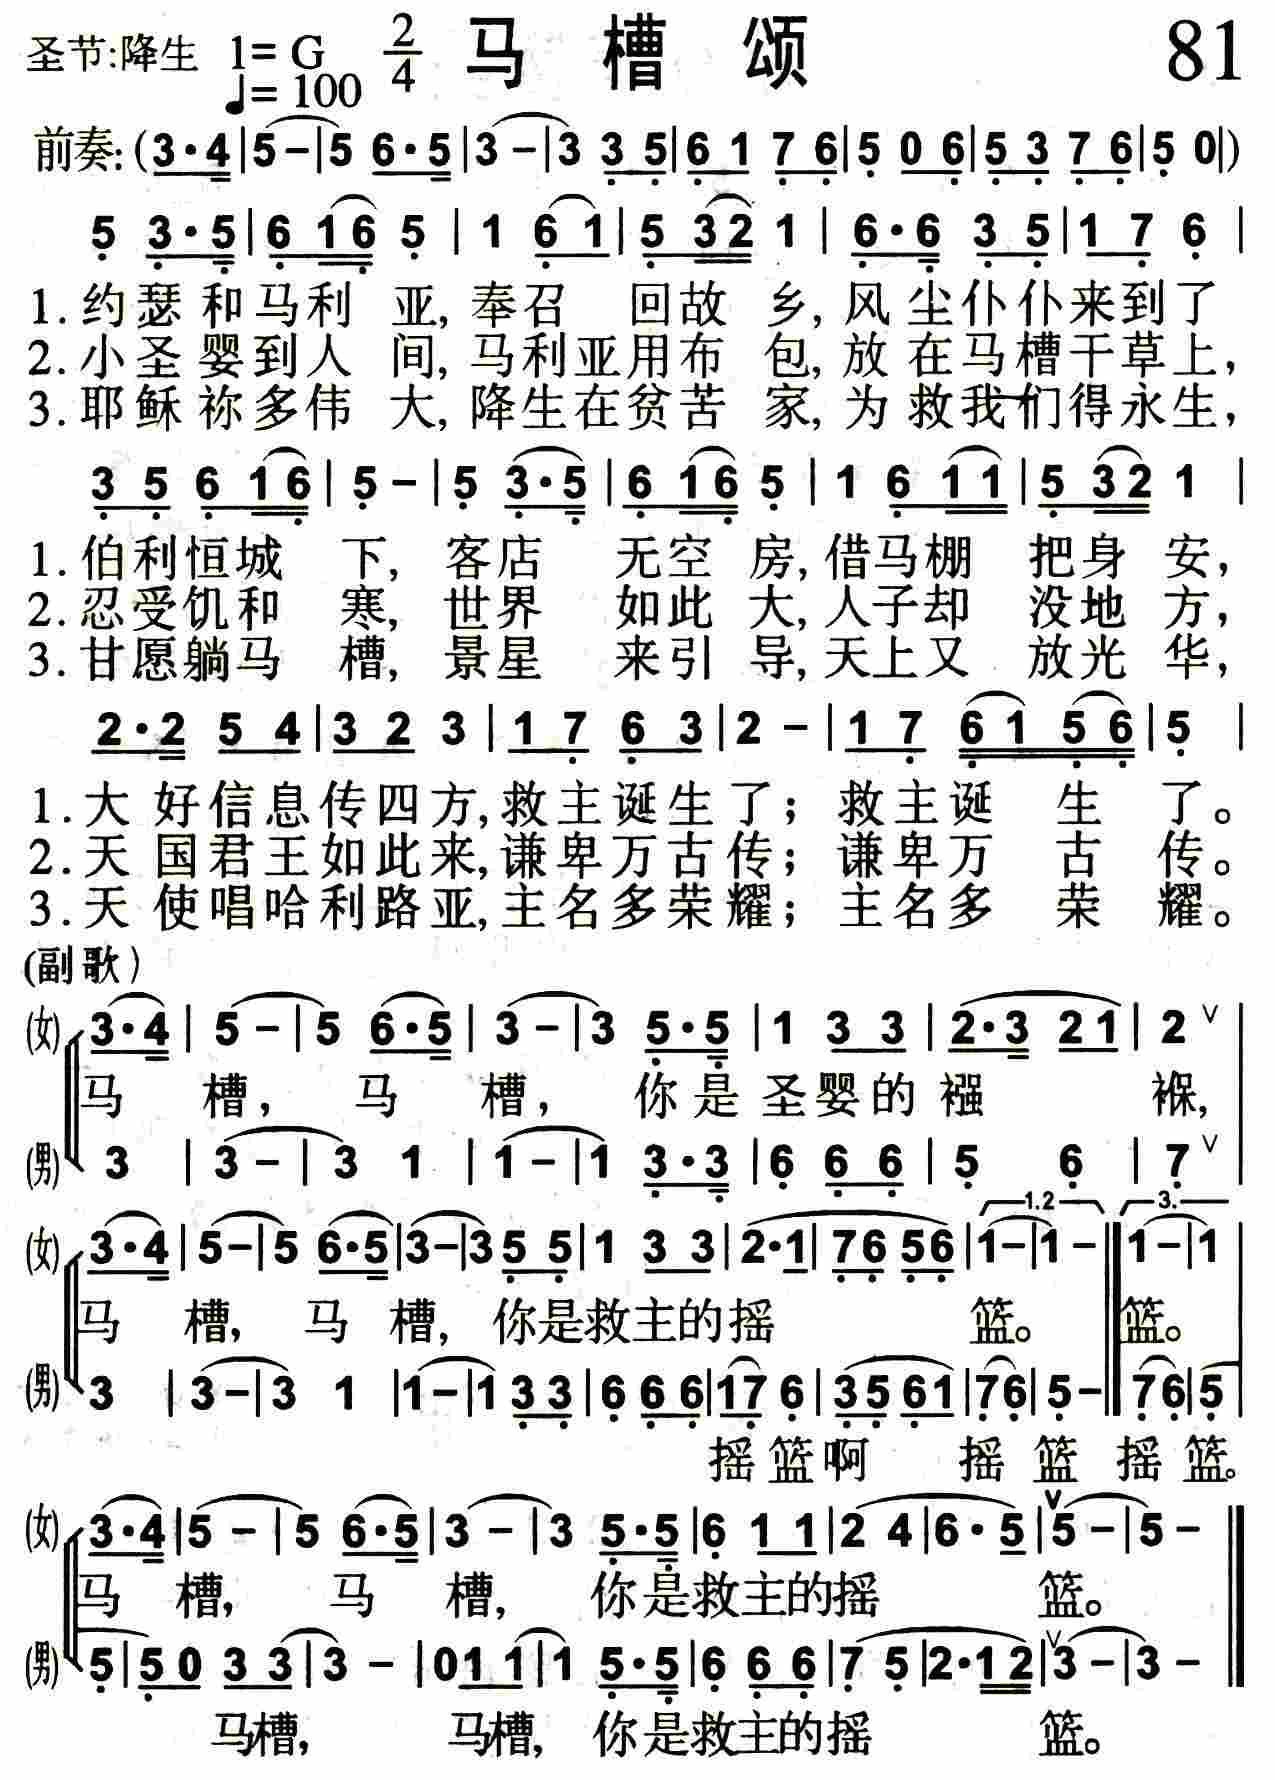 圣节:降生 1=G 2/4 马槽颂 81
♩=100
前奏:(3·4|5-|5 6·5|3-|3 3 5|6 1 7 6|5 0 6|5 3 7 6|5 0|)
5 3·5|6 16 5|1 6 1|5 32 1|6·6 3 5|1 7 6|
1.约瑟和马利亚,奉召回故乡,风尘仆仆来到了
2.小圣婴到人间,马利亚用布包,放在马槽干草上,
3.耶稣祢多伟大,降生在贫苦家,为救我们得永生,
3 5 6 16|5-|5 3·5|6 16 5|1 6 11|5 32 1|
1.伯利恒城下,客店无空房,借马棚把身安,
2.忍受饥和寒,世界如此大,人子却没地方,
3.甘愿躺马槽,景星来引导,天上又放光华,
2·2 5 4|3 2 3|1 7 6 3|2-|1 7 61 56|5|
1.大好信息传四方,救主诞生了;救主诞生了。
2.天国君王如此来,谦卑万古传;谦卑万古传。
3.天使唱哈利路亚,主名多荣耀;主名多荣耀。
(副歌)
(女) 3·4|5-|5 6·5|3-|3 5·5|1 3 3|2·3 21|2 ∨|
马槽,马槽,你是圣婴的襁褓,
(男) 3|3-|3 1|1-|1 3·3|6 6 6|5 6|7 ∨|
1.2 3.
(女) 3·4|5-|5 6·5|3-|3 5 5|1 3 3|2·1|76 56|1-|1-‖1-|1|
马槽,马槽,你是救主的摇篮。篮。
(男) 3|3-|3 1|1-|1 3 3|6 6 6|17 6|35 61|76|5-‖76|5|
摇篮啊摇篮摇篮。
(女) 3·4|5-|5 6·5|3-|3 5·5|6 11|2 4|6·5|∨5-|5-‖
马槽,马槽,你是救主的摇篮。
(男) 5|5 0 3 3|3-|0 1 1|1 5·5|6 6 6|7 5|2·12|∨3-|3-‖
马槽,马槽,你是救主的摇篮。